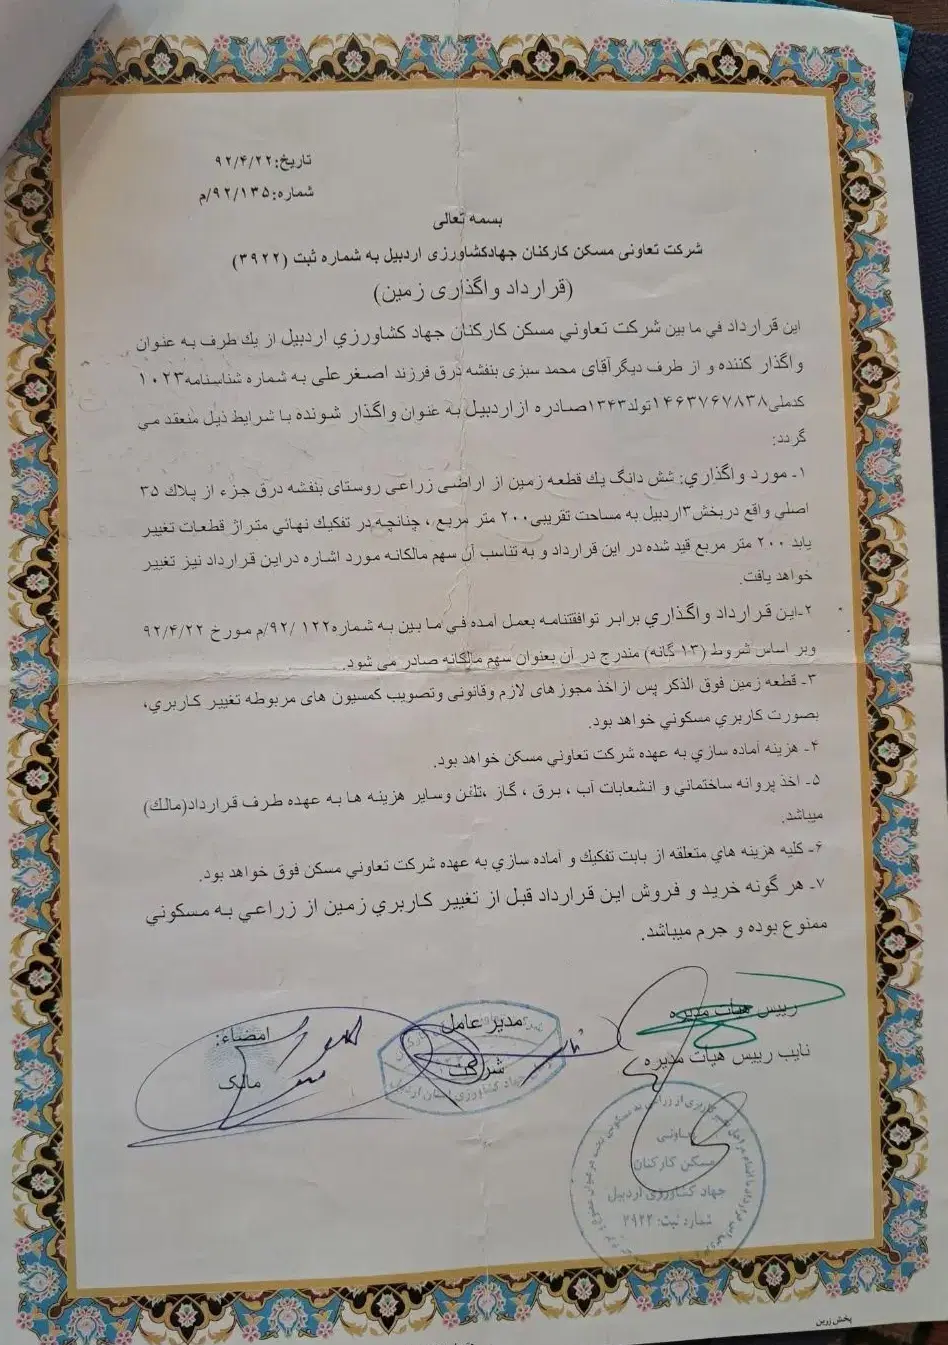 تاریخ:۹۲/۴/۲۲
شماره:۹۲/۱۳۵/م
بسمه تعالی
شرکت تعاونی مسکن کارکنان جهادکشاورزی اردبیل به شماره ثبت (۳۹۲۲)
(قرارداد واگذاری زمین)
این قرارداد في ما بین شرکت تعاوني مسکن کارکنان جهاد کشاورزي اردبیل از یك طرف به عنوان
واگذار کننده و از طرف دیگر آقای محمد سبزی بنفشه درق فرزند اصغرعلی به شماره شناسنامه۱۰۲۳
کدملی۱۴۶۳۷۶۷۸۳۸تولد۱۳۴۳صادره ازاردبیل به عنوان واگذار شونده با شرایط ذیل منعقد مي
گردد:
۱- مورد واگذاري: شش دانگ یك قطعه زمین از اراضی زراعی روستای بنفشه درق جزء از پلاك ۳۵
اصلي واقع دربخش۳اردبیل به مساحت تقریبی۲۰۰ متر مربع ، چنانچه در تفکیك نهائي متراژ قطعات تغییر
یابد ۲۰۰ متر مربع قید شده در این قرارداد و به تناسب آن سهم مالکانه مورد اشاره دراین قرارداد نیز تغییر
خواهد یافت.
۲-این قرارداد واگذاري برابر توافقتنامه بعمل آمده في ما بین به شماره۱۲۲ /۹۲/م مورخ ۹۲/۴/۲۲
وبر اساس شروط (۱۳ گانه) مندرج در آن بعنوان سهم مالکانه صادر می شود.
۳- قطعه زمین فوق الذکر پس ازاخذ مجوزهای لازم وقانونی وتصویب کمسیون های مربوطه تغییر کاربري،
بصورت کاربري مسکوني خواهد بود.
۴- هزینه آماده سازي به عهده شرکت تعاوني مسکن خواهد بود.
۵- اخذ پروانه ساختماني و انشعابات آب ، برق ، گاز ،تلفن وسایر هزینه ها به عهده طرف قرارداد(مالك)
میباشد.
۶- کلیه هزینه هاي متعلقه از بابت تفکیك و آماده سازي به عهده شرکت تعاوني مسکن فوق خواهد بود.
۷- هر گونه خرید و فروش این قرارداد قبل از تغییر کاربري زمین از زراعي به مسکوني
ممنوع بوده و جرم میباشد.
رییس هیات مدیره
نایب رییس هیات مدیره
مدیر عامل
شرکت
امضاء:
مالک
تعاونی
مسکن کارکنان
جهاد کشاورزی اردبیل
شماره ثبت: ۳۹۲۲
پخش زرین